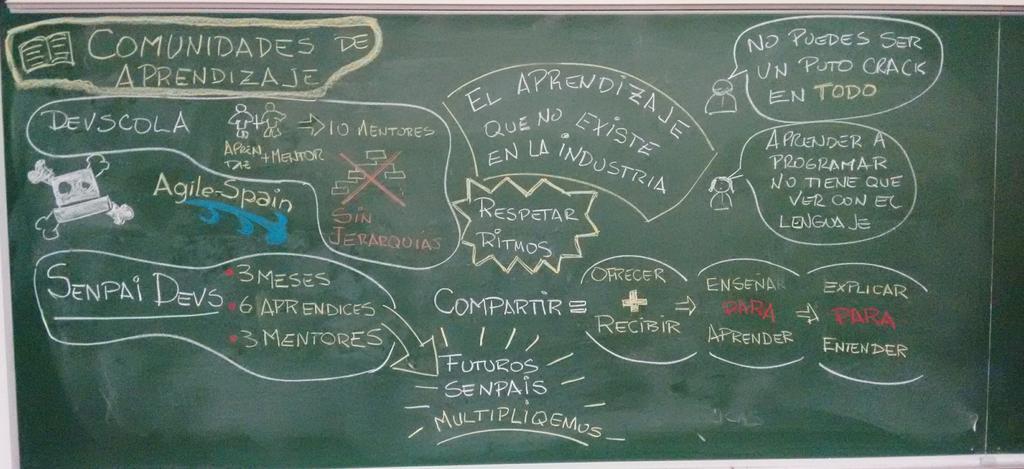 COMUNIDADES DE
APRENDIZAJE
DEVSCOLA
APREN
DIZ + MENTOR
⇒ 10 MENTORES
SIN
JERARQUÍAS
Agile-Spain
EL APRENDIZAJE
QUE NO EXISTE
EN LA INDUSTRIA
RESPETAR
RITMOS
NO PUEDES SER
UN PUTO CRACK
EN TODO
APRENDER A
PROGRAMAR
NO TIENE QUE
VER CON EL
LENGUAJE
SENPAI DEVS
• 3 MESES
• 6 APRENDICES
• 3 MENTORES
FUTUROS
SENPAIS
MULTIPLIQEMOS
COMPARTIR ≡
OFRECER
+
RECIBIR
⇒
ENSEÑAR
PARA
APRENDER
⇒
EXPLICAR
PARA
ENTENDER